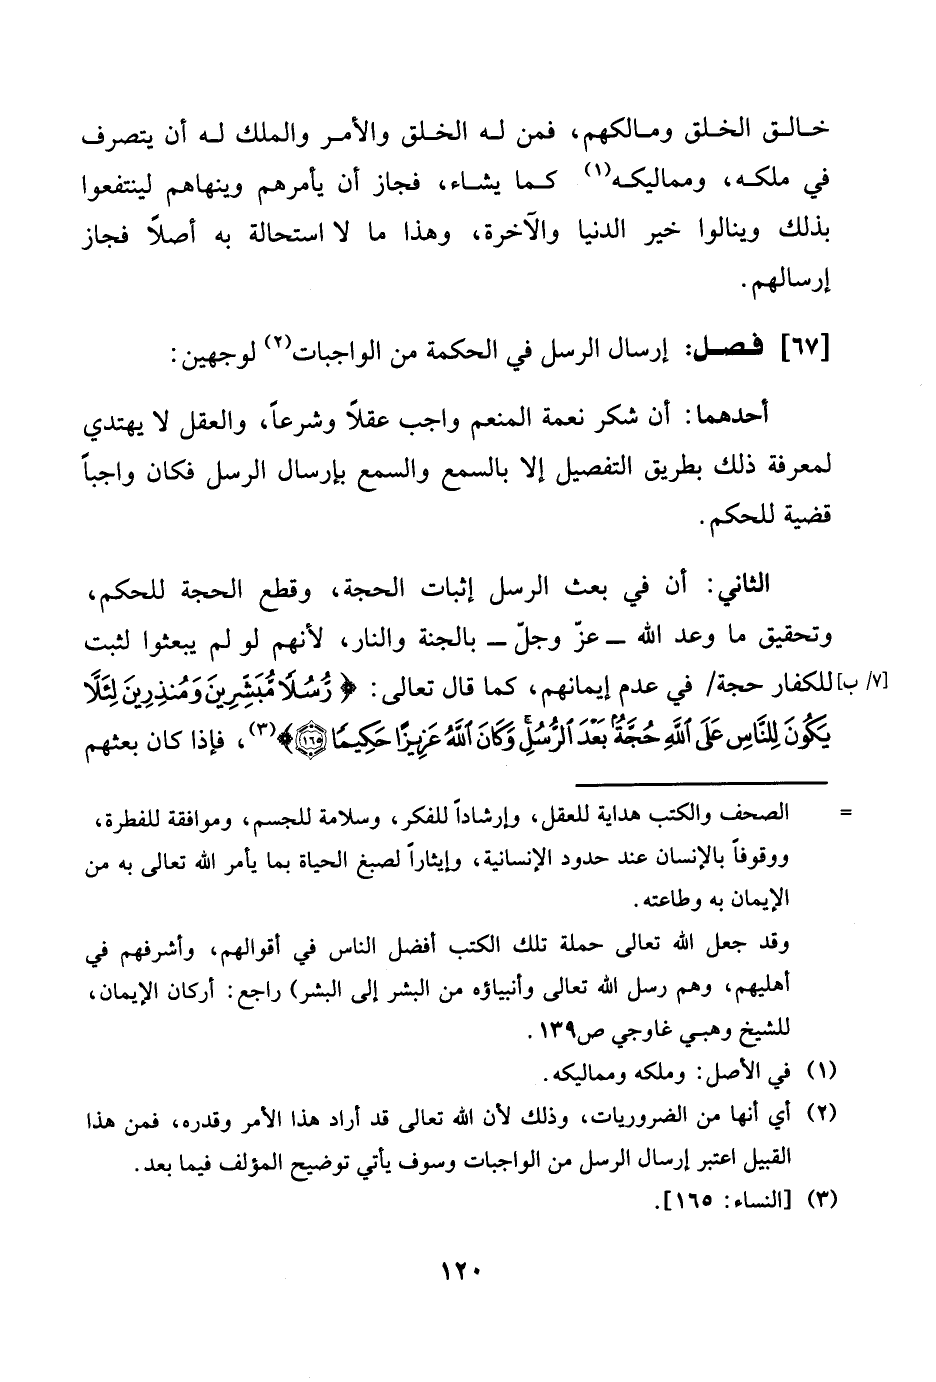 خالق الخلق ومالكهم، فمن له الخلق والأمر والملك له أن يتصرف
في ملكه، ومماليكه(١) كما يشاء، فجاز أن يأمرهم وينهاهم لينتفعوا
بذلك وينالوا خير الدنيا والآخرة، وهذا ما لا استحالة به أصلاً فجاز
إرسالهم.
[٦٧] فصل: إرسال الرسل في الحكمة من الواجبات(٢) لوجهين:
أحدهما: أن شكر نعمة المنعم واجب عقلاً وشرعاً، والعقل لا يهتدي
لمعرفة ذلك بطريق التفصيل إلا بالسمع والسمع بإرسال الرسل فكان واجباً
قضية للحكم.
الثاني: أن في بعث الرسل إثبات الحجة، وقطع الحجة للحكم،
وتحقيق ما وعد الله ــ عزّ وجلّ ــ بالجنة والنار، لأنهم لو لم يبعثوا لثبت
[٧/ ب] للكفار حجة/ في عدم إيمانهم، كما قال تعالى: ﴿ رُّسُلًا مُّبَشِّرِينَ وَمُنذِرِينَ لِئَلَّا
يَكُونَ لِلنَّاسِ عَلَى ٱللَّهِ حُجَّةٌۢ بَعْدَ ٱلرُّسُلِۚ وَكَانَ ٱللَّهُ عَزِيزًا حَكِيمًا ١٦٥﴾(٣)، فإذا كان بعثهم
= الصحف والكتب هداية للعقل، وإرشاداً للفكر، وسلامة للجسم، وموافقة للفطرة،
ووقوفاً بالإنسان عند حدود الإنسانية، وإيثاراً لصبغ الحياة بما يأمر الله تعالى به من
الإيمان به وطاعته.
وقد جعل الله تعالى حملة تلك الكتب أفضل الناس في أقوالهم، وأشرفهم في
أهليهم، وهم رسل الله تعالى وأنبياؤه من البشر إلى البشر) راجع: أركان الإيمان،
للشيخ وهبي غاوجي ص١٣٩.
(١) في الأصل: وملكه ومماليكه.
(٢) أي أنها من الضروريات، وذلك لأن الله تعالى قد أراد هذا الأمر وقدره، فمن هذا
القبيل اعتبر إرسال الرسل من الواجبات وسوف يأتي توضيح المؤلف فيما بعد.
(٣) [النساء: ١٦٥].
١٢٠